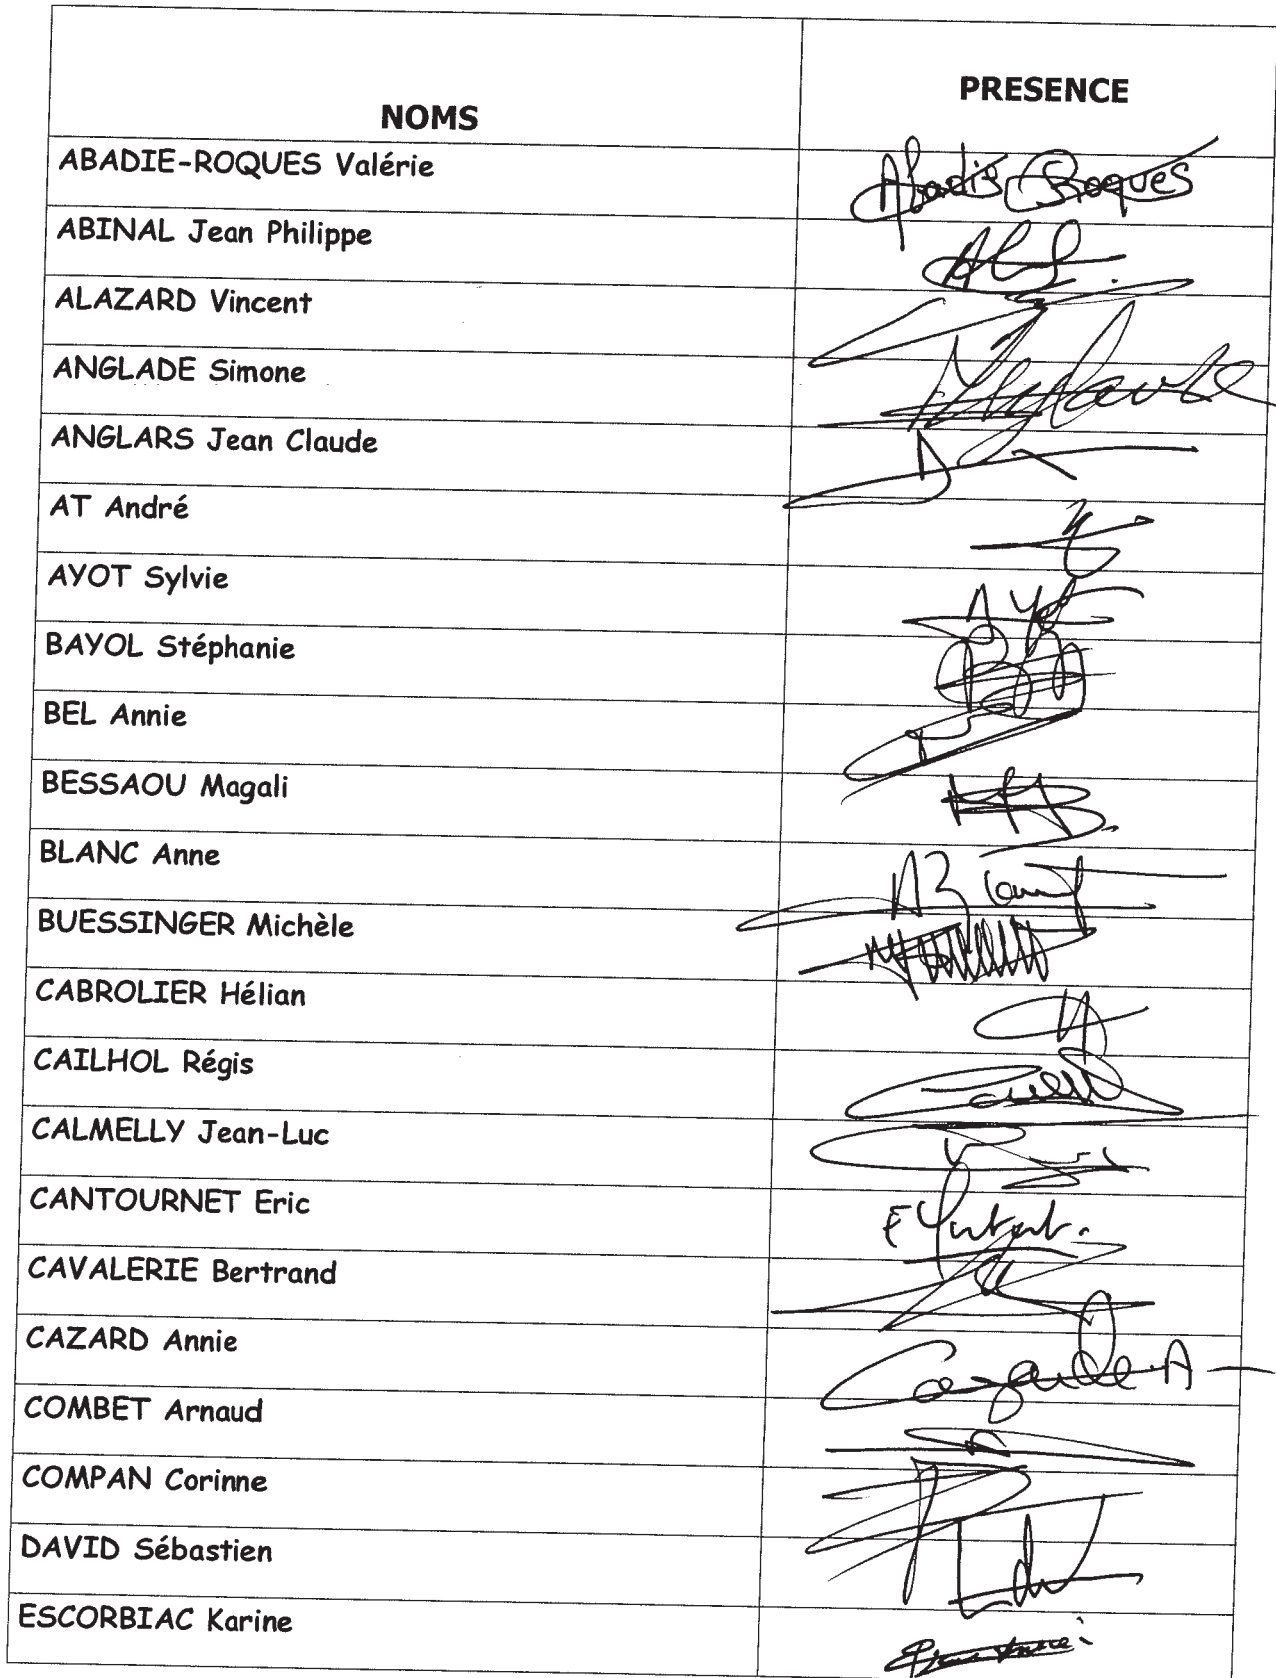 NOMS PRESENCE
ABADIE-ROQUES Valérie Abadie Roques
ABINAL Jean Philippe
ALAZARD Vincent
ANGLADE Simone
ANGLARS Jean Claude
AT André
AYOT Sylvie
BAYOL Stéphanie
BEL Annie
BESSAOU Magali
BLANC Anne
BUESSINGER Michèle
CABROLIER Hélian
CAILHOL Régis
CALMELLY Jean-Luc
CANTOURNET Eric
CAVALERIE Bertrand
CAZARD Annie
COMBET Arnaud
COMPAN Corinne
DAVID Sébastien
ESCORBIAC Karine